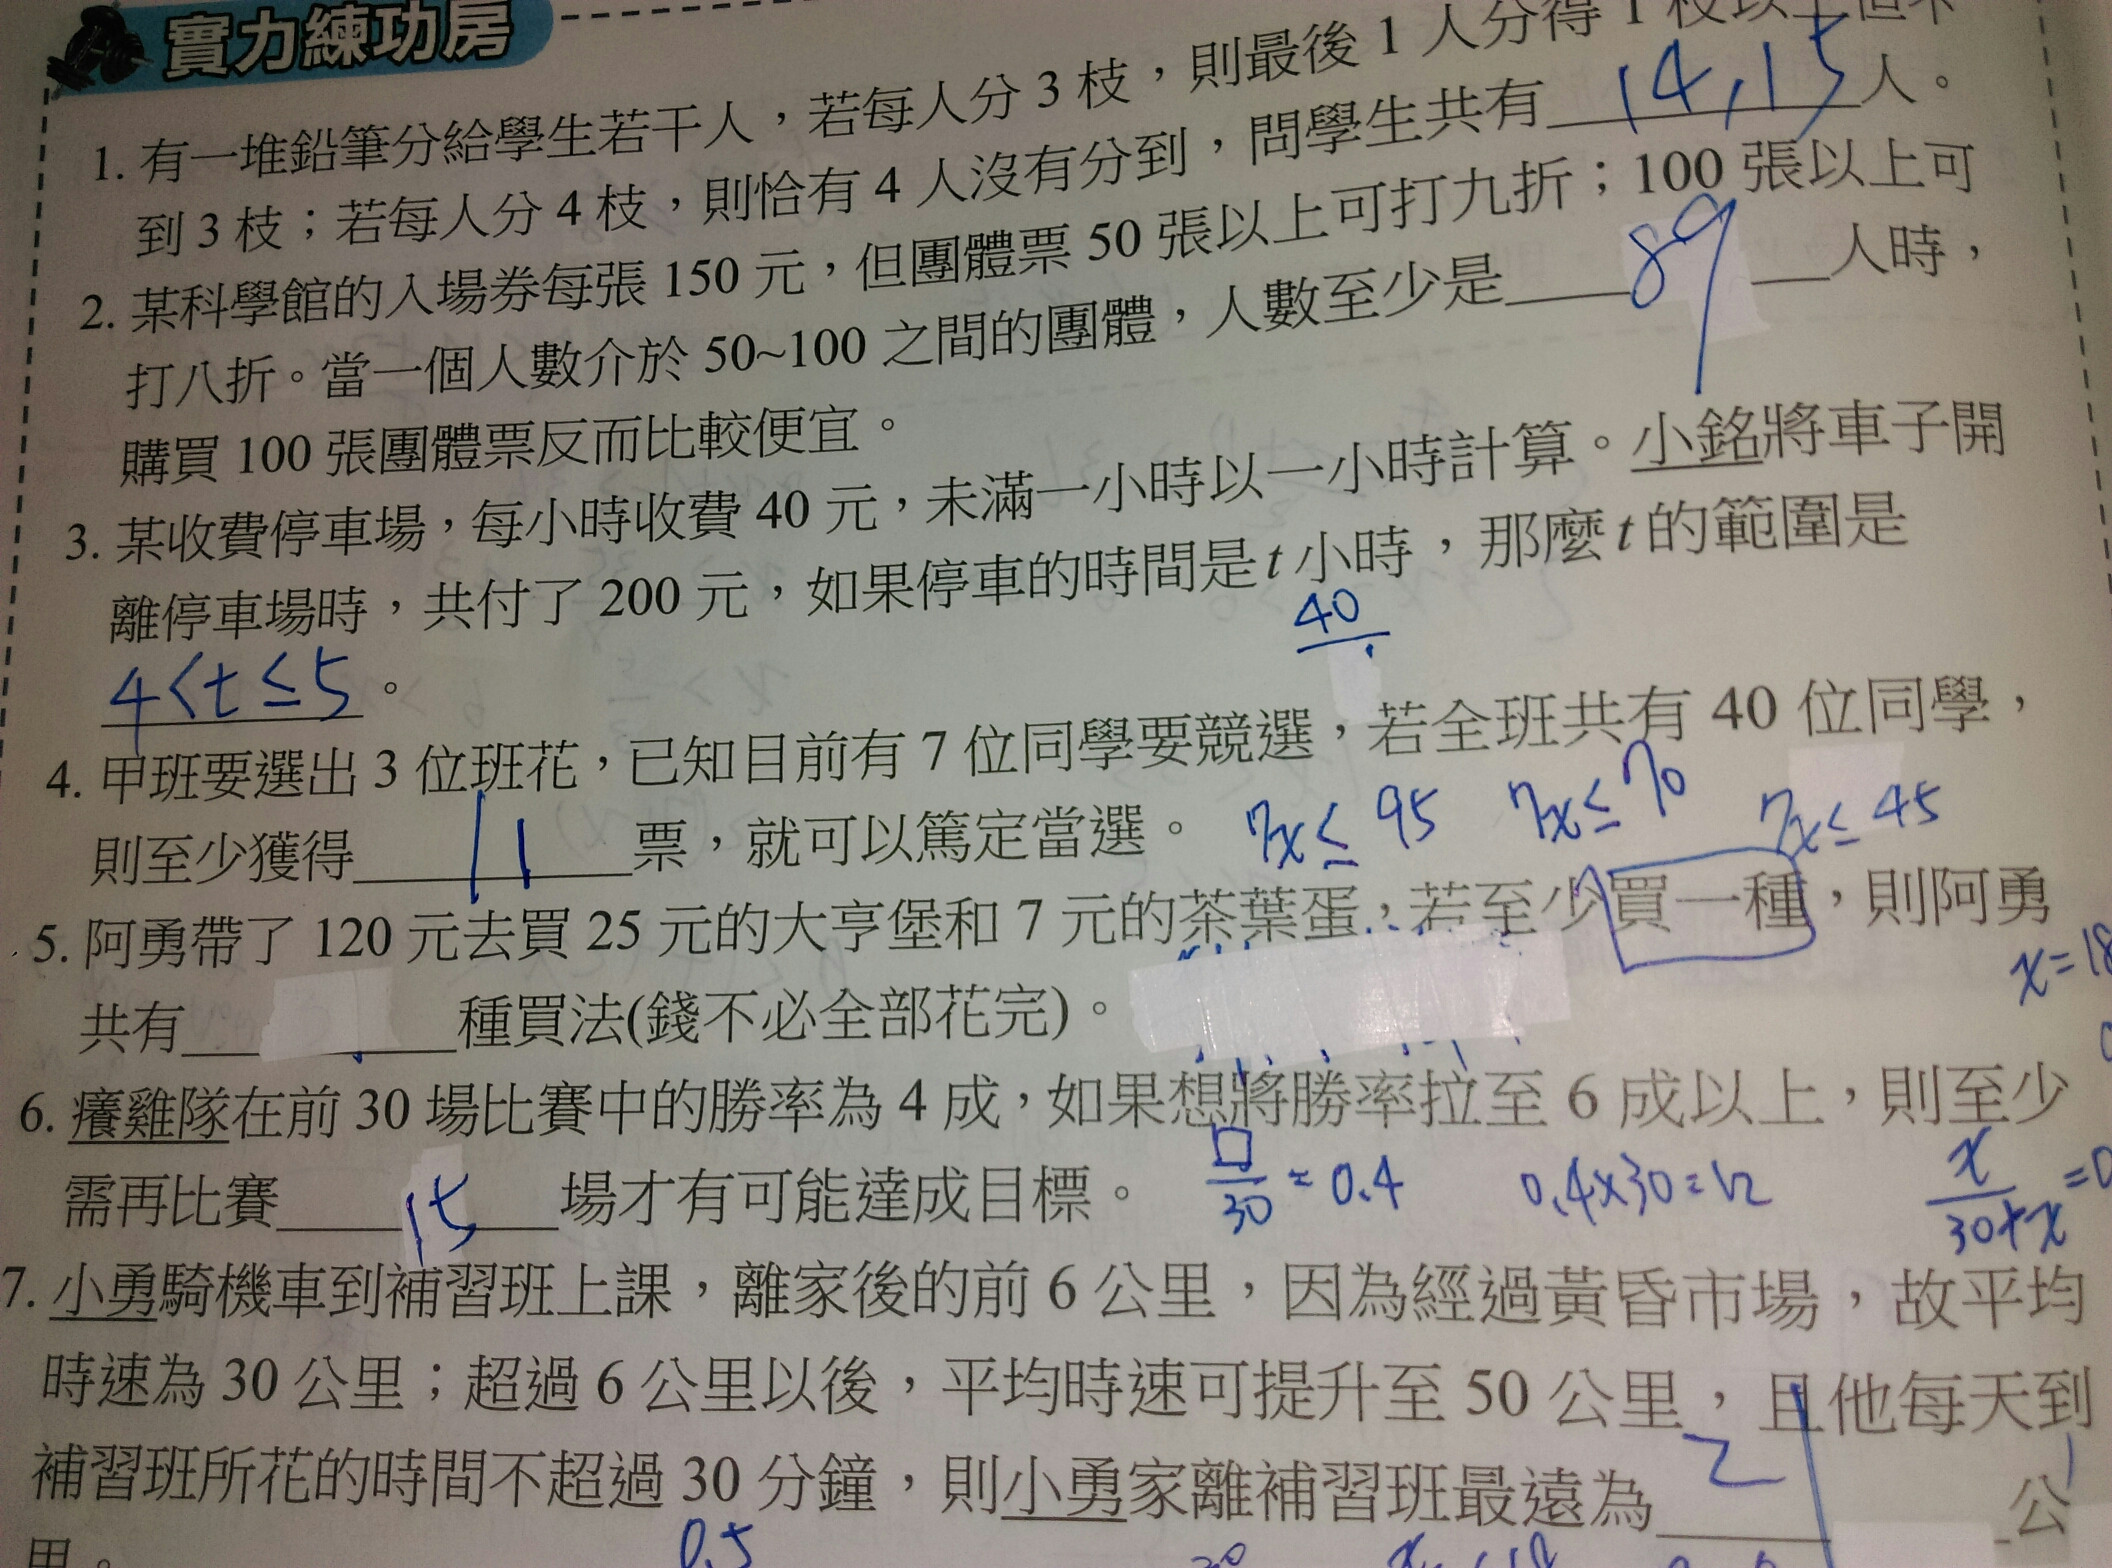 實力練功房
1. 有一堆鉛筆分給學生若干人，若每人分 3 枝，則最後 1 人分得 1 枝以上但不
到 3 枝；若每人分 4 枝，則恰有 4 人沒有分到，問學生共有 14,15 人。
2. 某科學館的入場券每張 150 元，但團體票 50 張以上可打九折；100 張以上可
打八折。當一個人數介於 50~100 之間的團體，人數至少是 89 人時，
購買 100 張團體票反而比較便宜。
3. 某收費停車場，每小時收費 40 元，未滿一小時以一小時計算。小銘將車子開
離停車場時，共付了 200 元，如果停車的時間是 t 小時，那麼 t 的範圍是
40
4<t≤5 。
4. 甲班要選出 3 位班花，已知目前有 7 位同學要競選，若全班共有 40 位同學，
則至少獲得 11 票，就可以篤定當選。 7x≤95 7x≤70 7x≤45
5. 阿勇帶了 120 元去買 25 元的大亨堡和 7 元的茶葉蛋，若至少買一種，則阿勇
x=18
共有 種買法(錢不必全部花完)。
6. 癢雞隊在前 30 場比賽中的勝率為 4 成，如果想將勝率拉至 6 成以上，則至少
需再比賽 15 場才有可能達成目標。 □/30=0.4 0.4x30=12 x/30+x=0
7. 小勇騎機車到補習班上課，離家後的前 6 公里，因為經過黃昏市場，故平均
時速為 30 公里；超過 6 公里以後，平均時速可提升至 50 公里，且他每天到
補習班所花的時間不超過 30 分鐘，則小勇家離補習班最遠為 21 公
里。 0.5